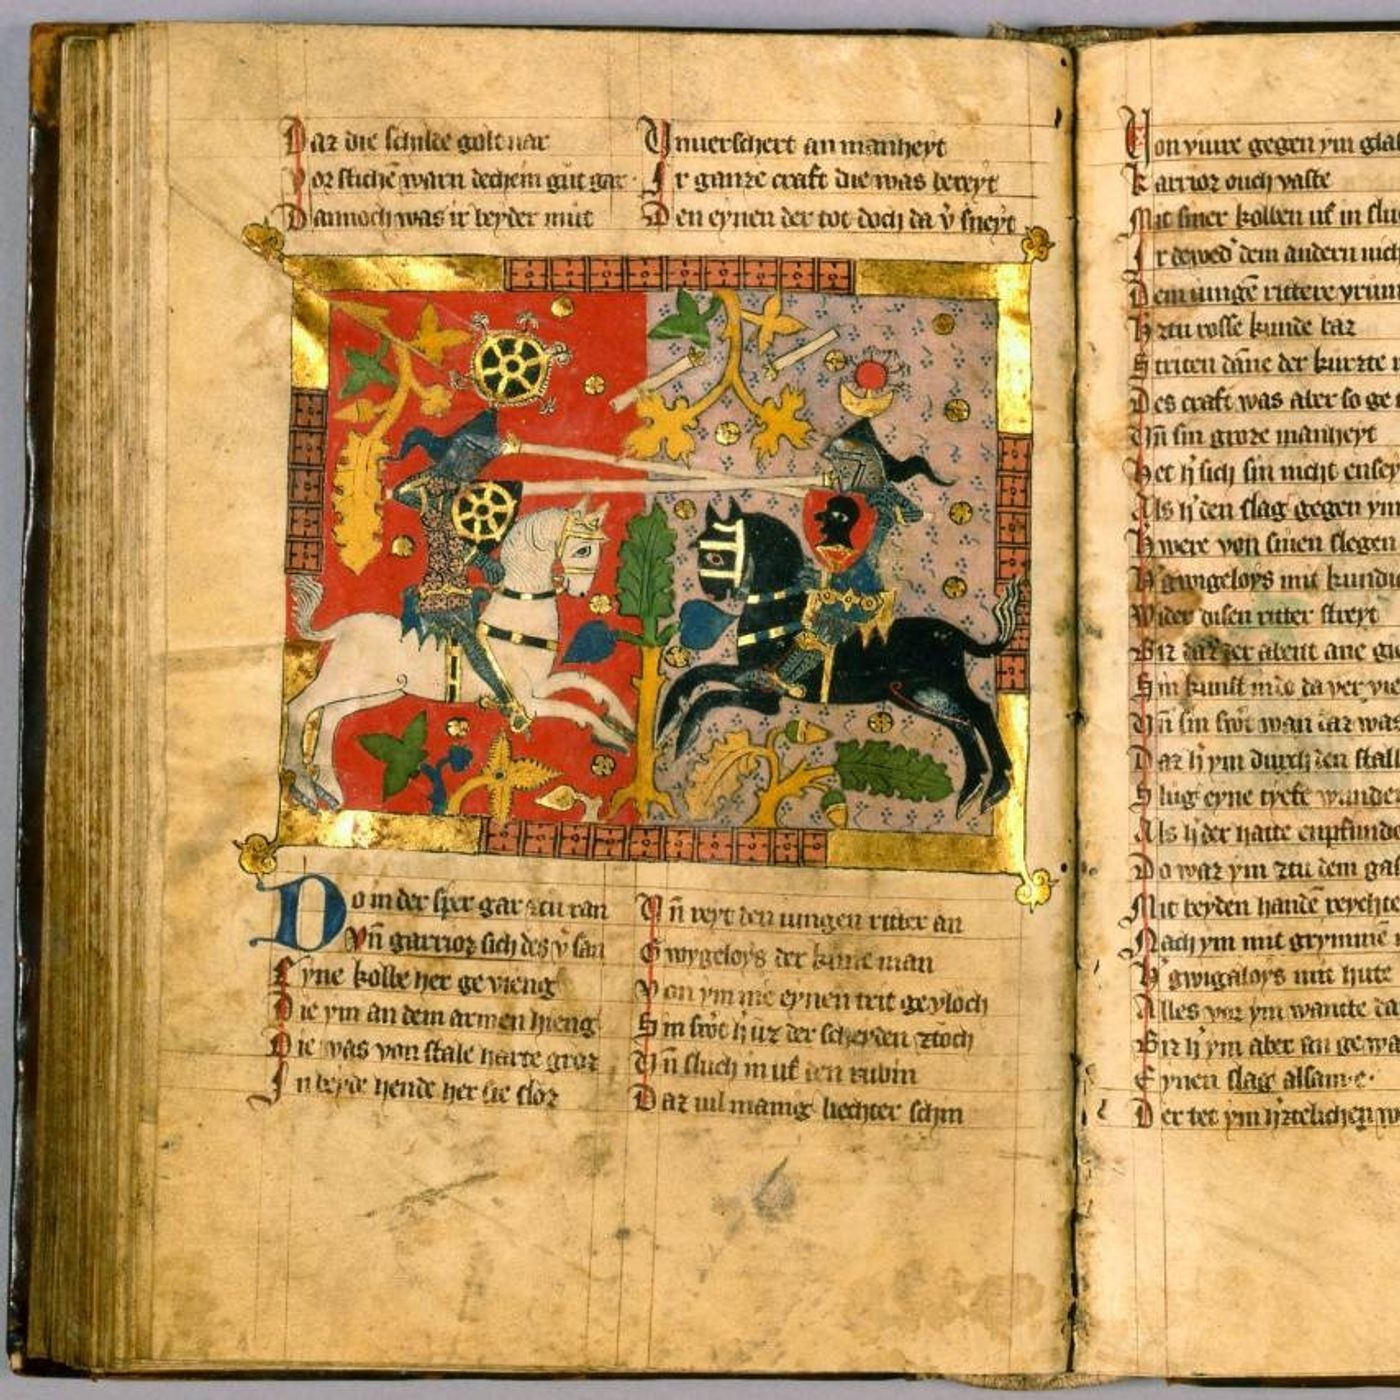 Daz die schilde golt var
Vor stichē warn dechein gůt gar
Dannoch was ir beyder můt
Vnuerschert an manheyt
Ir ganze craft die was bereyt
Den eynen der tot doch da v̉ sneyt
Do in der sper gar zcu ran
Vn̄ garrioz sich des v̉ san
Eyne kolbe her ge vieng
Die ym an dem armen hieng
Die was von stale harte groz
In beyde hende her sie sloz
Vn̄ reyt den iungen ritter an
Gwygeloys der kune man
Von ym nie eynen trit geyloch
Sin swͦt h̉ uz der scheyden zcoch
Vn̄ sluch in uf den rubin
Daz uil manig liechter schin
Von viure gegen ym
Karrioz ouch vaste
Mit siner kolben uf in
Ir dewed̉ dem andern
Dem iungē rittere
Hztu rosse kunde baz
Striten dāne der kurtze
Des craft was aber so
Vn̄ sin groze manheyt
Het h̉ sich sin nicht
Als h̉ den slag gegen ym
H̉ were von sinen slegen
H̉ gwigeloys mit
Wider disen ritter streyt
Biz daz der abent ane
Sin kunst
Vn̄ sin swͦt wan daz was
Daz h̉ ym durch den
Slug eyne tyefe
Als h̉ der hatte enpfunde
Do waz ym ztu dem
Mit beyden handē
Nach ym mit grymmē
H̉ gwigaloys mit hute
Alles vor ym wancte
Biz h̉ ym aber an
Eynen slag alsam e
Der tet ym